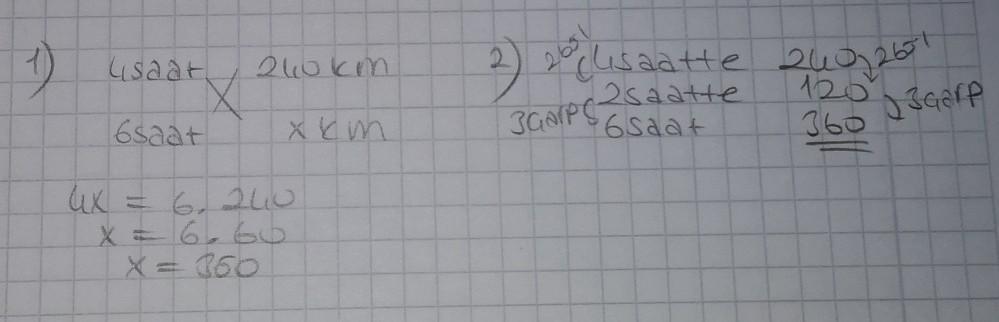 1) 4saat 240 km
6saat x km
4x = 6. 240
x = 6. 60
x = 360
2) 2böl 4saatte 240 2böl
2saatte 120
3çarp 6saat 360 3çarp